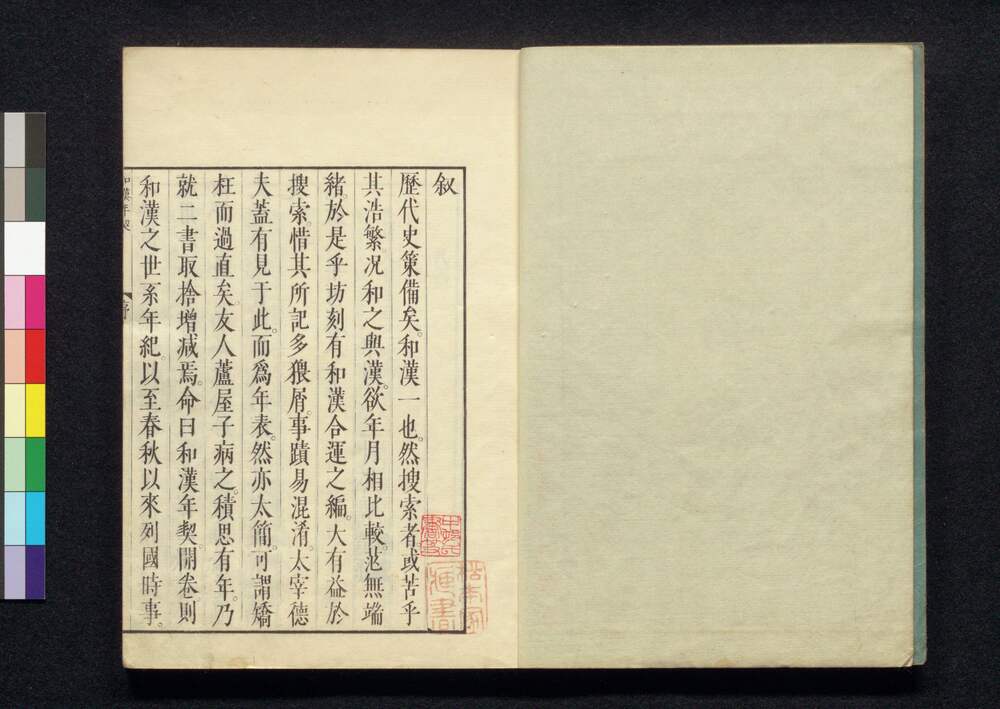 叙
歷代史策備矣。和漢一也。然搜索者或苦乎
其浩繁况和之與漢。欲年月相比較。茫無端
緒。於是乎坊刻有和漢合運之編。大有益於
搜索。惜其所記多猥屑。事蹟易混淆。太宰德
夫蓋有見于此。而爲年表。然亦太簡。可謂矯
枉而過直矣。友人蘆屋子病之。積思有年。乃
就二書取捨增减焉。命曰和漢年契。開卷則
和漢之世系年紀。以至春秋以來列國時事。
和漢年契
序